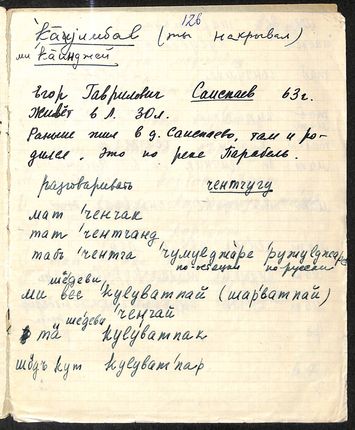 126
'ка̄ӄулбав (ты накрывал)
ми 'ка̄инджей
Егор Гаврилович Саиспаев 63 г.
Живёт в Л. 30 л.
Раньше жил в д. Саиспаево, там и ро-
дился. Это по реке Парабель.
разговаривать ченттугу
мат 'ченгак
тат 'ченттанд
табъ 'ченга 'чумулджаре 'ружулджаре
по-остяцки по-русски
шёдеви
ми все кулуватпай (шарватпай)
шедеви 'ченгай
та̄ кулуватпак
шёдъ кут кулуватпар